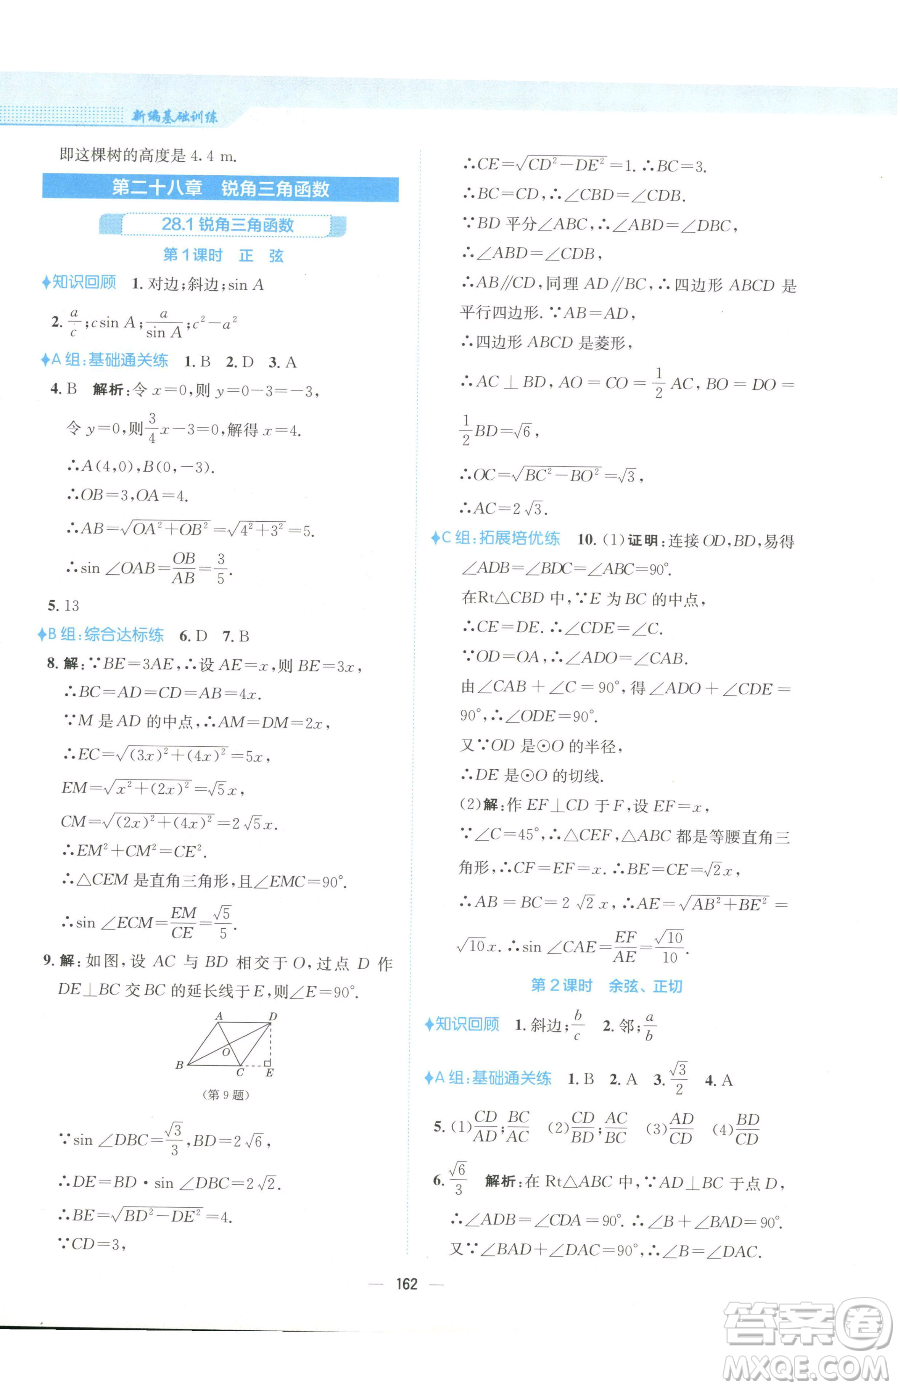 新编基础训练
即这棵树的高度是 4.4 m.
第二十八章 锐角三角函数
28.1 锐角三角函数
第1课时 正 弦
知识回顾 1. 对边;斜边;sin A
2. a/c;c sin A;a/sin A;c²-a²
A组:基础通关练 1. B 2. D 3. A
4. B 解析:令 x=0,则 y=0-3=-3,
令 y=0,则 3/4 x-3=0,解得 x=4.
∴A(4,0),B(0,-3).
∴OB=3,OA=4.
∴AB=√(OA²+OB²)=√(4²+3²)=5.
∴sin ∠OAB=OB/AB=3/5.
5. 13
B组:综合达标练 6. D 7. B
8. 解:∵BE=3AE,∴设 AE=x,则 BE=3x,
∴BC=AD=CD=AB=4x.
∵M 是 AD 的中点,∴AM=DM=2x,
∴EC=√((3x)²+(4x)²)=5x,
EM=√(x²+(2x)²)=√5x,
CM=√((2x)²+(4x)²)=2√5x.
∴EM²+CM²=CE².
∴△CEM 是直角三角形,且∠EMC=90°.
∴sin ∠ECM=EM/CE=√5/5.
9. 解:如图,设 AC 与 BD 相交于 O,过点 D 作
DE⊥BC 交 BC 的延长线于 E,则∠E=90°.
A D
O
B C E
(第9题)
∵sin ∠DBC=√3/3,BD=2√6,
∴DE=BD·sin ∠DBC=2√2.
∴BE=√(BD²-DE²)=4.
∵CD=3,
∴CE=√(CD²-DE²)=1. ∴BC=3.
∴BC=CD. ∴∠CBD=∠CDB.
∵BD 平分∠ABC,∴∠ABD=∠DBC.
∴∠ABD=∠CDB.
∴AB∥CD,同理 AD∥BC. ∴四边形 ABCD 是
平行四边形. ∵AB=AD,
∴四边形 ABCD 是菱形,
∴AC⊥BD,AO=CO=1/2 AC,BO=DO=
1/2 BD=√6,
∴OC=√(BC²-BO²)=√3,
∴AC=2√3.
C组:拓展培优练 10. (1)证明:连接 OD,BD,易得
∠ADB=∠BDC=∠ABC=90°.
在Rt△CDB 中,∵E 为 BC 的中点,
∴CE=DE. ∴∠CDE=∠C.
∵OD=OA,∴∠ADO=∠CAB.
由∠CAB+∠C=90°,得∠ADO+∠CDE=
90°,∴∠ODE=90°.
又∵OD 是⊙O 的半径,
∴DE 是⊙O 的切线.
(2)解:作 EF⊥CD 于 F,设 EF=x,
∵∠C=45°,∴△CEF,△ABC 都是等腰直角三
角形,∴CF=EF=x. ∴BE=CE=√2x.
∴AB=BC=2√2x,∴AE=√(AB²+BE²)=
√10x. ∴sin ∠CAE=EF/AE=√10/10.
第2课时 余弦、正切
知识回顾 1. 斜边;b/c 2. 邻;a/b
A组:基础通关练 1. B 2. A 3. √3/2 4. A
5. (1)CD/AD;BC/AC (2)CD/BD;AC/BC (3)AD/CD (4)BD/CD
6. √6/3 解析:在 Rt△ABC 中,AD⊥BC 于点 D,
∴∠ADB=∠CDA=90°. ∴∠B+∠BAD=90°.
又∵∠BAD+∠DAC=90°,∴∠B=∠DAC.
162
答案圈
MXQE.COM